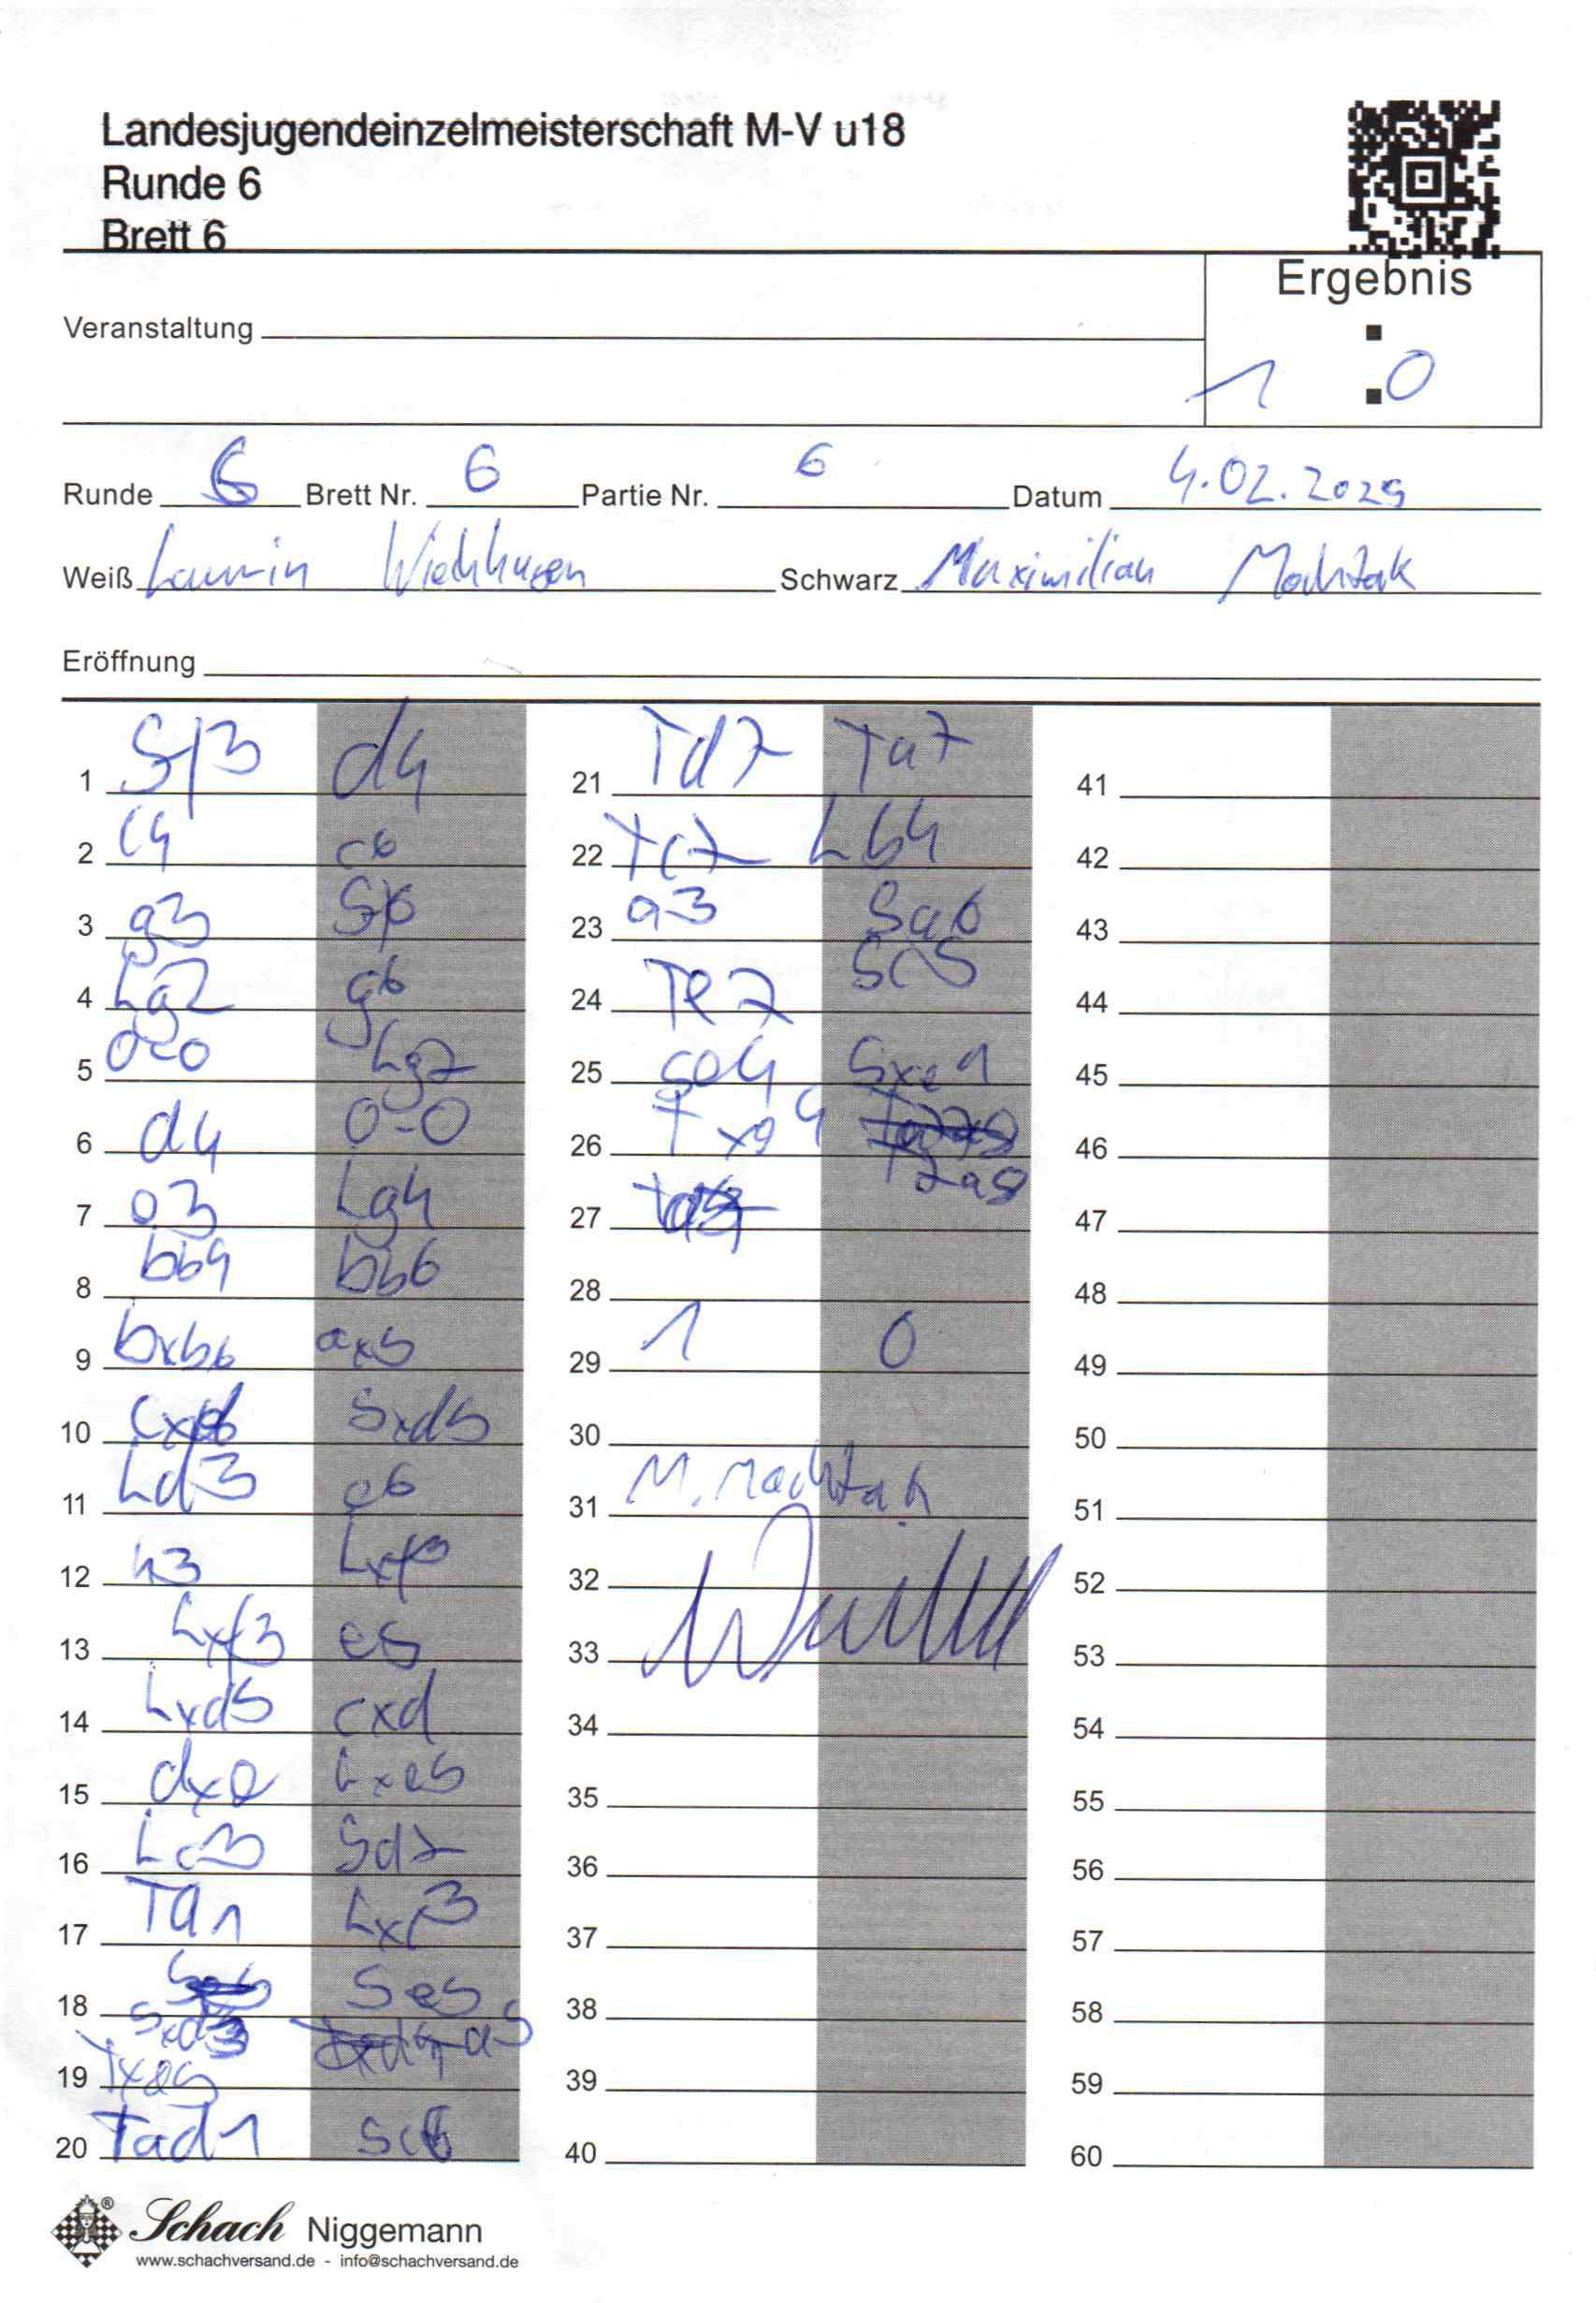 Landesjugendeinzelmeisterschaft M-V u18
Runde 6
Brett 6
Ergebnis
Veranstaltung
:
1 : 0
Runde 6 Brett Nr. 6 Partie Nr. 6 Datum 4.02.2025
Weiß Schwarz Maximilian
Eröffnung
1 Sf3 d4 21 Td7 Ta7 41
2 c4 c6 22 Tc7 Lb4 42
3 g3 Sf6 23 a3 Sa6 43
4 Lg2 g6 24 Te7 Sc5 44
5 0-0 Lg7 25 Se4 Sxe1 45
6 d4 0-0 26 Txg4 T7a8 46
7 e3 Lg4 27 47
8 bb4 bb6 28 48
9 bxb6 axb 29 1 0 49
10 Sxd5 30 50
11 Ld3 e6 31 M. Machtak 51
12 h3 Lxf3 32 52
13 Lxf3 e5 33 53
14 Lxd5 cxd 34 54
15 dxe Lxe5 35 55
16 Lc3 Sd7 36 56
17 Ta1 Lxc3 37 57
18 Sxd3 Se5 38 58
19 39 59
20 Tad1 Sc6 40 60
Schach Niggemann
www.schachversand.de - info@schachversand.de